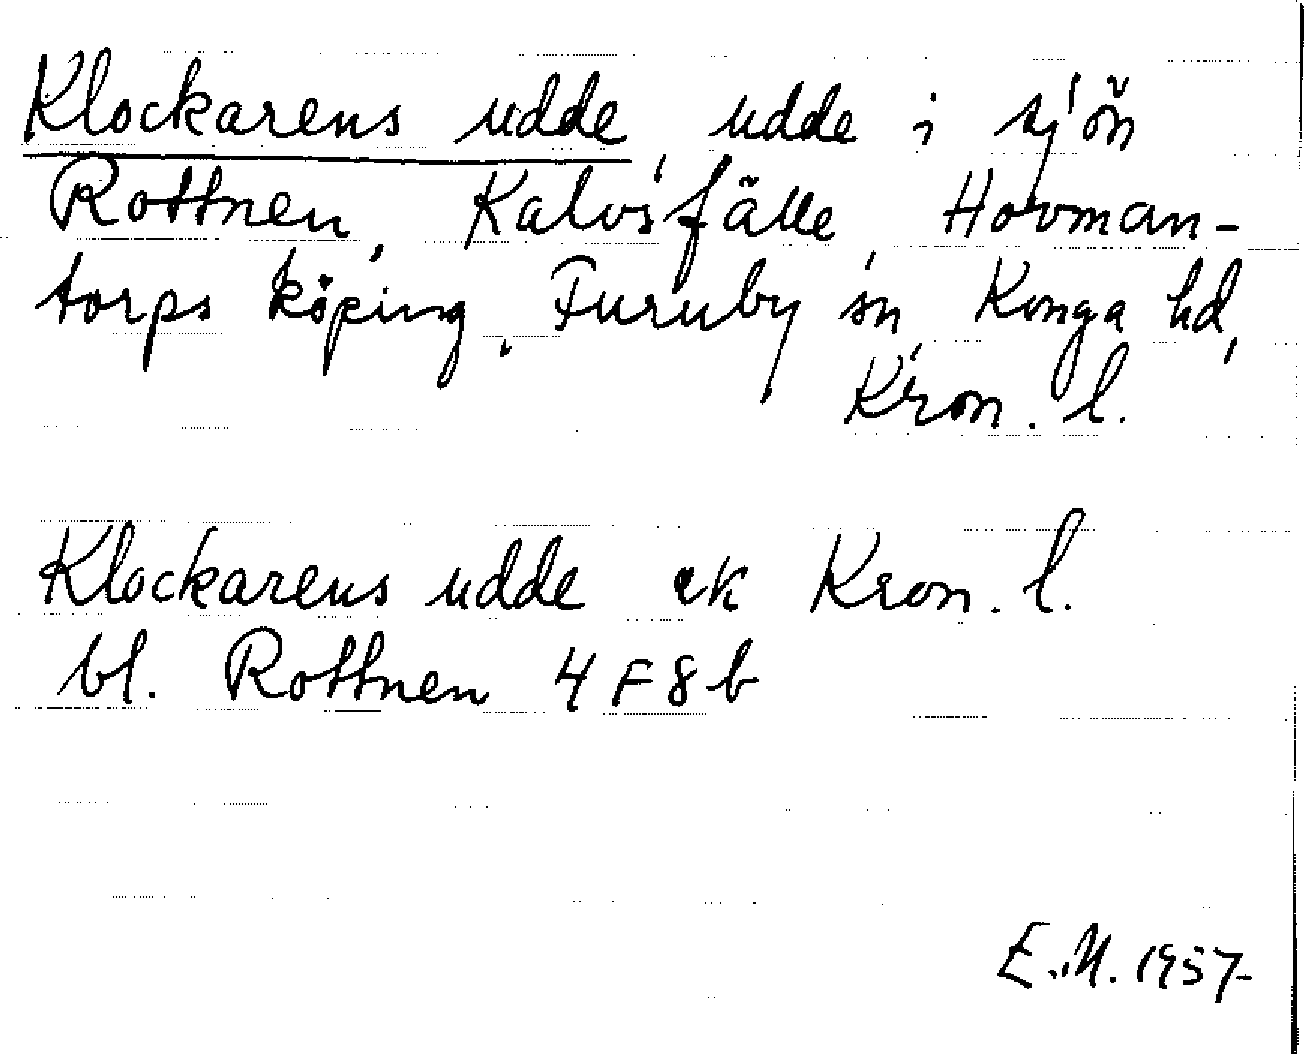 Klockarens udde, udde i sjön
Rottnen, Kalvsfälle, Hovman-
torps köping, Furuby sn, Konga hd,
Kron. l.
Klockarens udde ek Kron. l.
bl. Rottnen 4 F 8 b
E.M. 1957